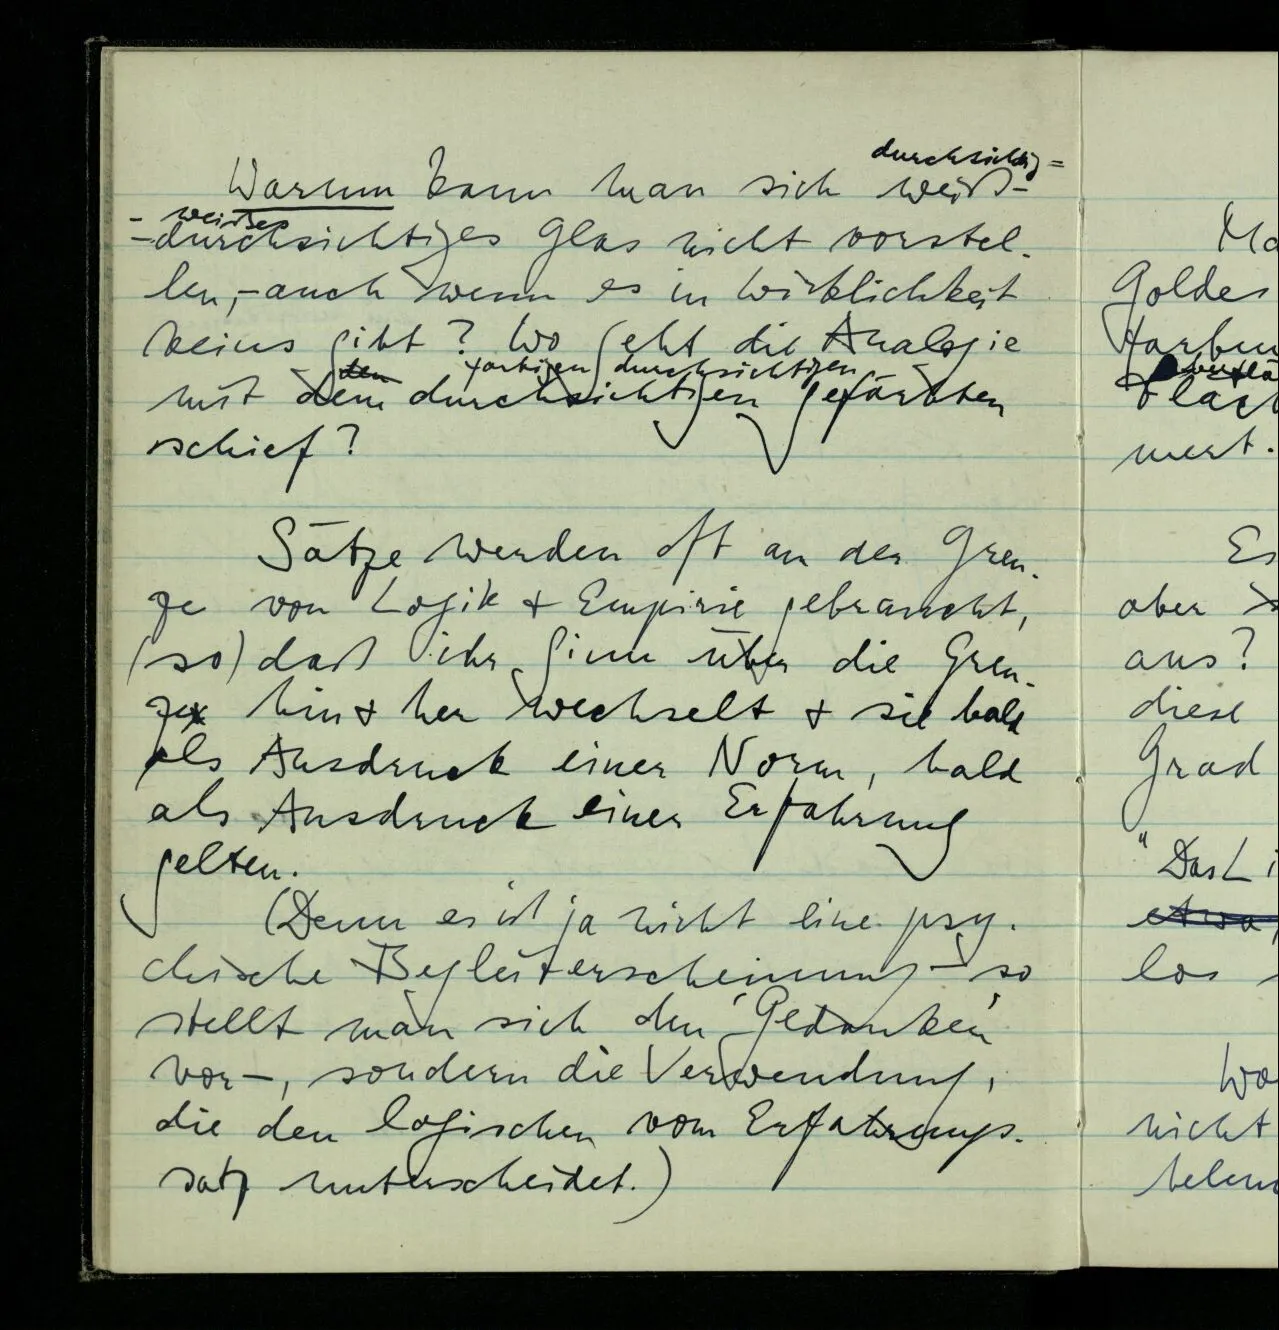 durchsichtig=
Warum kann man sich weiß-
- weißes
-durchsichtiges Glas nicht vorstel-
len,- auch wenn es in Wirklichkeit
keins gibt? Wo geht die Analogie
den farbigen durchsichtigen
mit dem durchsichtigen gefärbten
schief?
Sätze werden oft an der Gren-
ze von Logik + Empirie gebraucht,
(so) daß ihr Sinn über die Gren-
ze hin + her wechselt + sie bald
als Ausdruck einer Norm, bald
als Ausdruck einer Erfahrung
gelten.
(Denn es ist ja nicht eine psy-
chische Begleiterscheinung – so
stellt man sich den 'Gedanken'
vor –, sondern die Verwendung,
die den logischen vom Erfahrungs-
satz unterscheidet.)
Goldes
mert.
Es
aber
aus?
diese
Grad
"Das L
etwa,
los
Wo
nicht